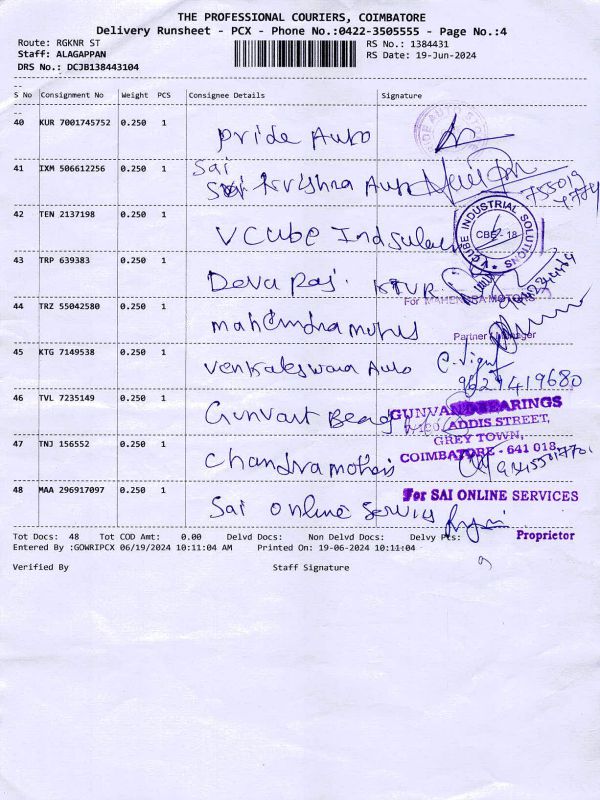 THE PROFESSIONAL COURIERS, COIMBATORE
Delivery Runsheet - PCX - Phone No.:0422-3505555 - Page No.:4
Route: RGKNR ST
RS No.: 1384431
Staff: ALAGAPPAN
RS Date: 19-Jun-2024
DRS No.: DCJB138443104
S No Consignment No Weight PCS Consignee Details Signature
40 KUR 7001745752 0.250 1 Pride Auto
41 IXM 506612256 0.250 1 Sai
Krishna Auto
42 TEN 2137198 0.250 1 V Cube
VCUBE INDUSTRIAL SOLUTIONS
CBE - 18
43 TRP 639383 0.250 1 Deva Raj. KTVR
For MAHENDRA MOTORS
44 TRZ 55042580 0.250 1 mahendra motors
Partner / Manager
45 KTG 7149538 0.250 1 Venkateswara Auto
9629419680
46 TVL 7235149 0.250 1 Gunvant
GUNVANT BEARINGS
ADDIS STREET,
GREY TOWN,
COIMBATORE - 641 018.
47 TNJ 156552 0.250 1 Chandra motors
48 MAA 296917097 0.250 1 Sai Online Servis
For SAI ONLINE SERVICES
Proprietor
Tot Docs: 48 Tot COD Amt: 0.00 Delvd Docs: Non Delvd Docs: Delvy Pts:
Entered By :GOWRIPCX 06/19/2024 10:11:04 AM Printed On: 19-06-2024 10:11:04
Verified By Staff Signature